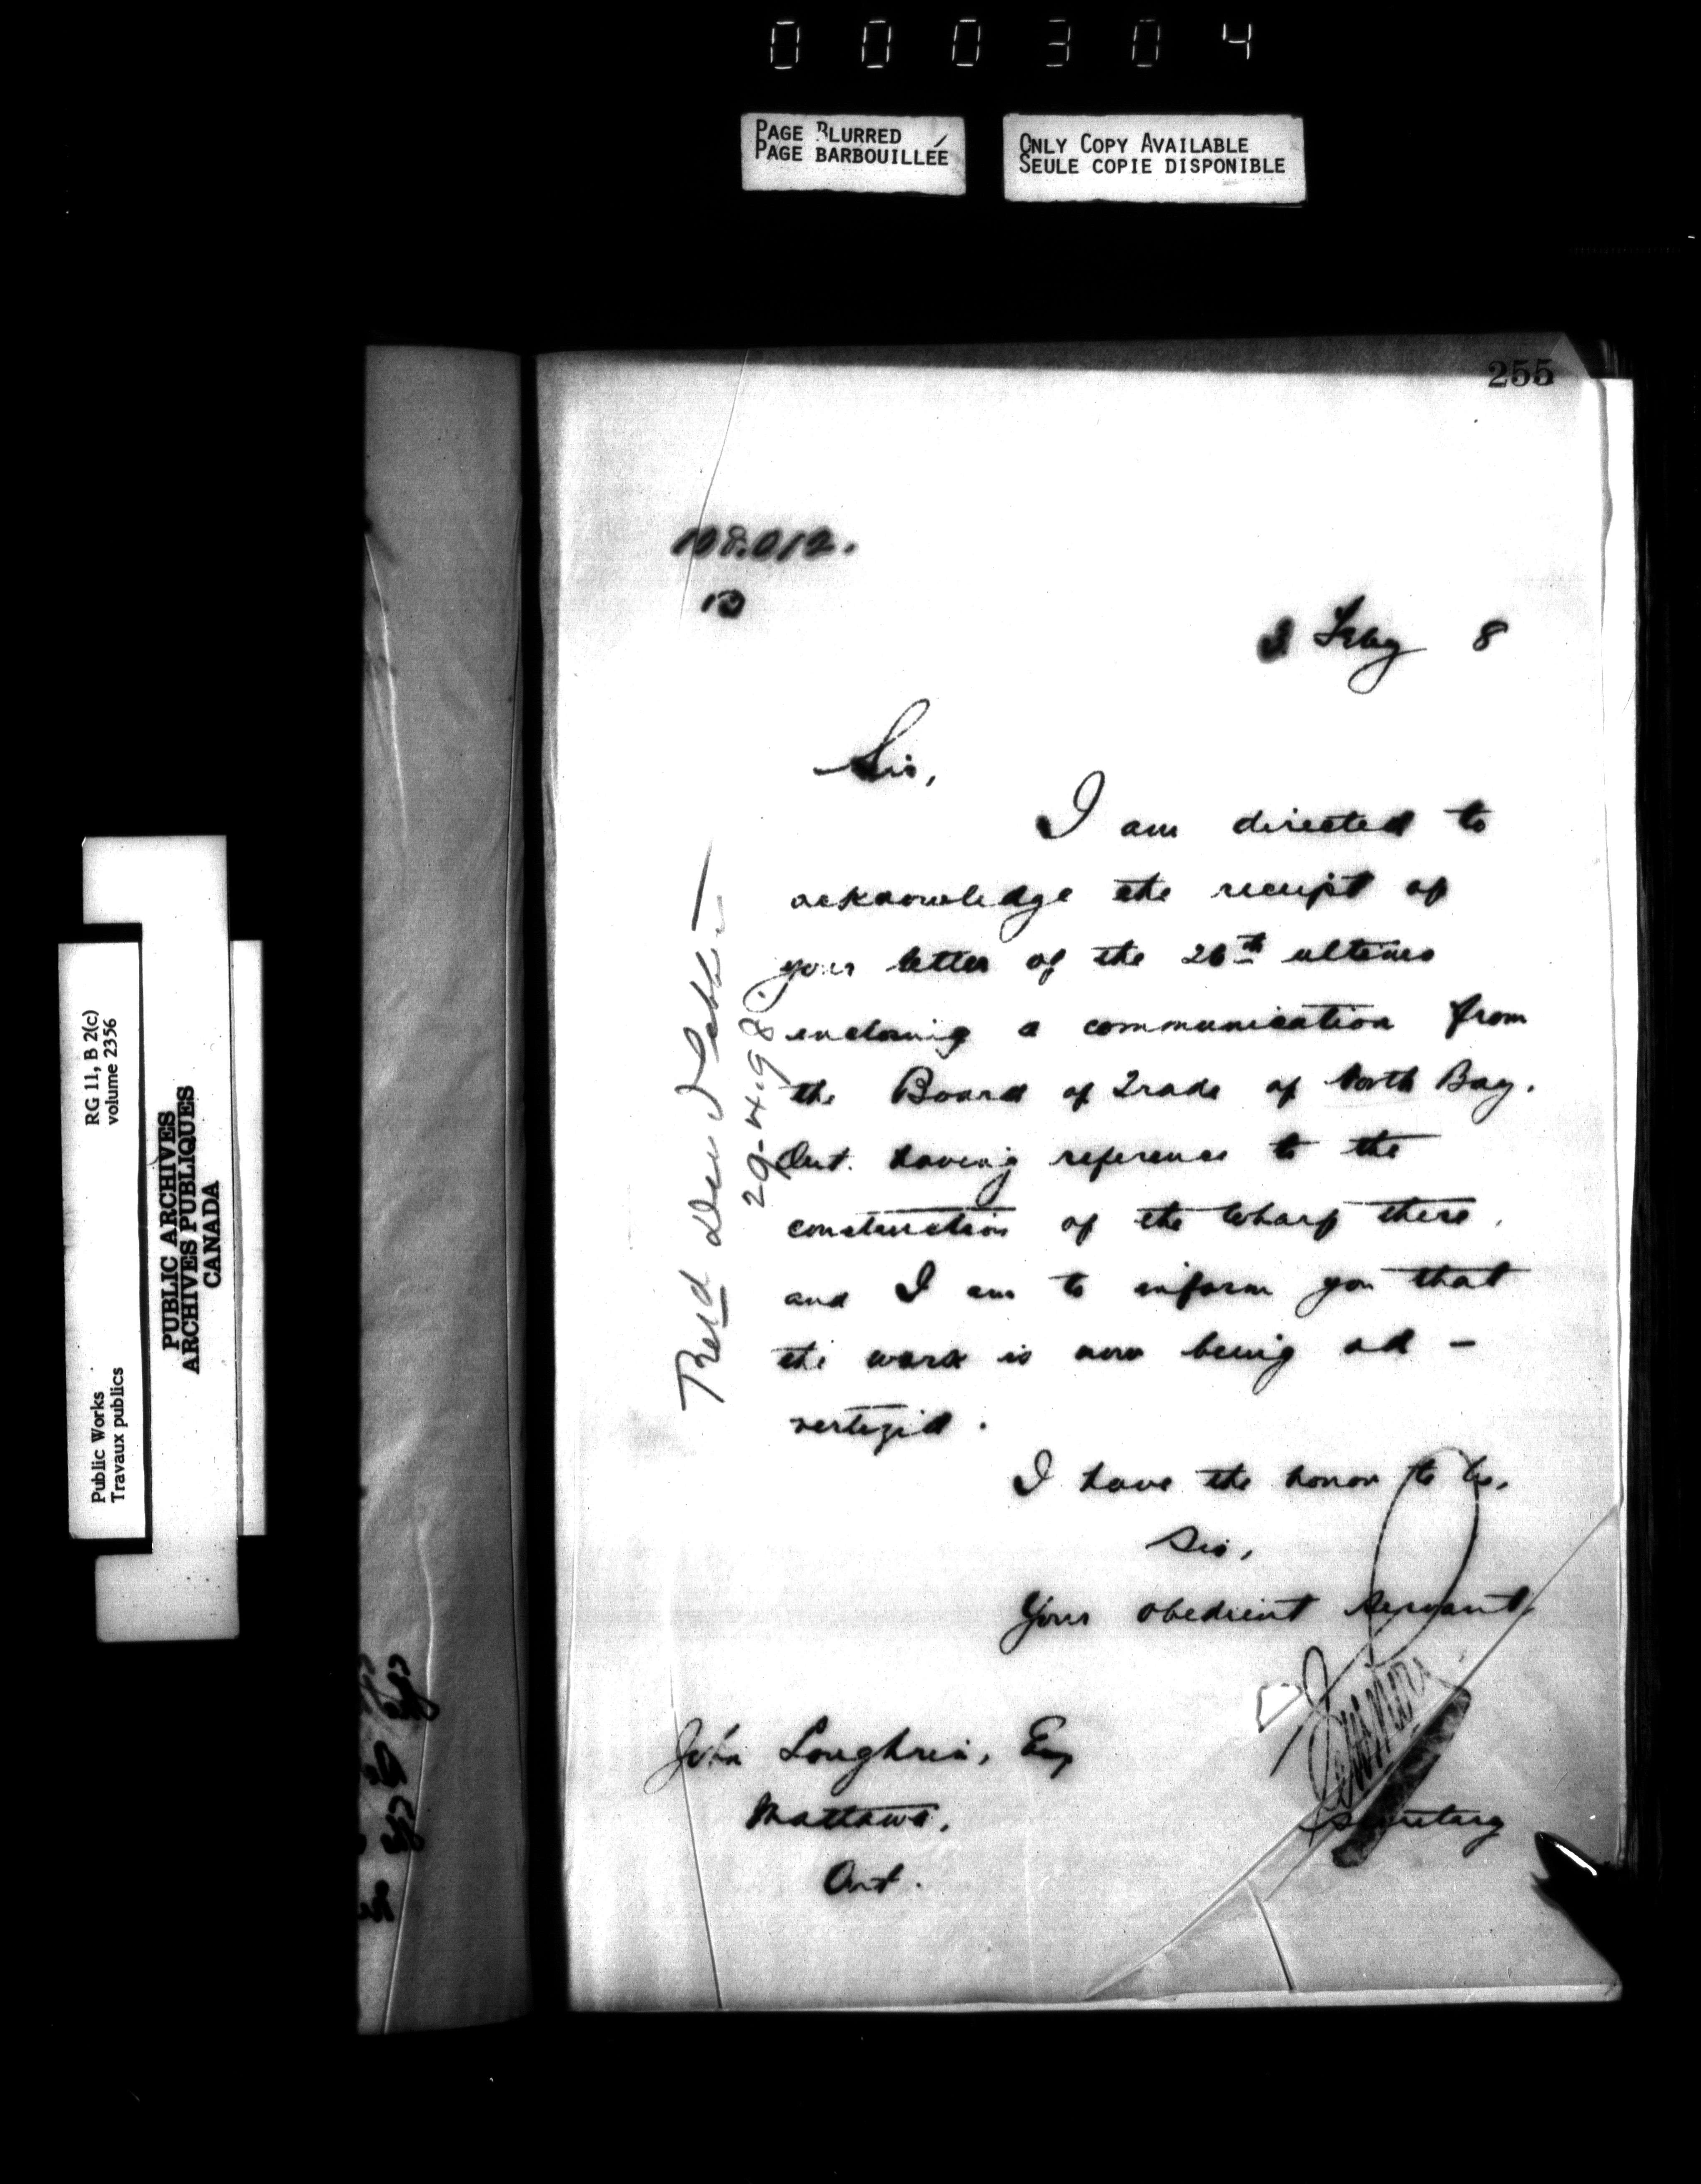 000304
PAGE BLURRED
PAGE BARBOUILLÉE
ONLY COPY AVAILABLE
SEULE COPIE DISPONIBLE
255
198.012.
Feby 8
Sir,
I am directed to
acknowledge the receipt of
your letter of the 26th ultimo
enclosing a communication from
the Board of Trade of North Bay.
Ont. having reference to the
construction of the wharf there,
and I am to inform you that
the work is now being ad-
vertized.
I have the honor to be,
Sir,
Your obedient servant
Secretary
John Loughrin, Esq
Mattawa,
Ont.
29-4-98.
RG 11, B 2(c)
volume 2356
Public Works
Travaux publics
PUBLIC ARCHIVES
ARCHIVES PUBLIQUES
CANADA